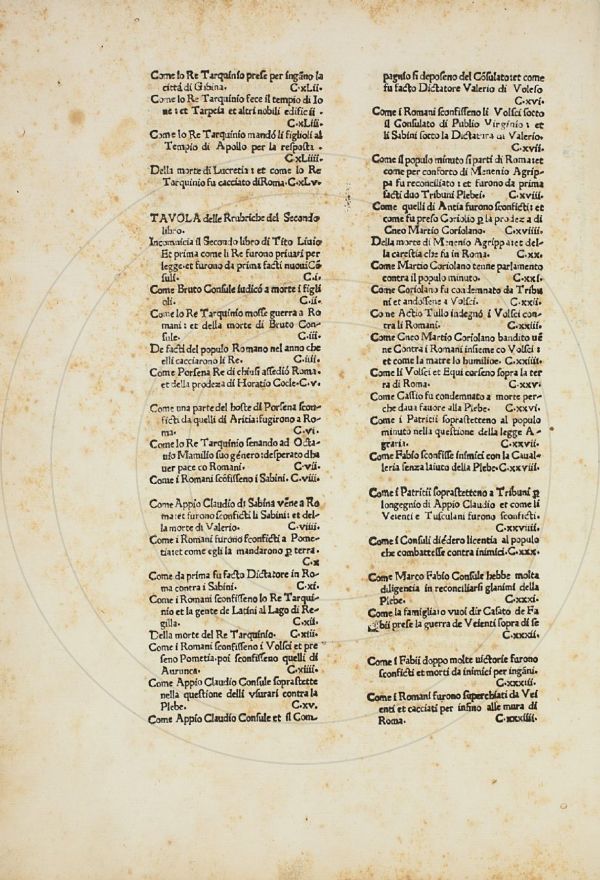 Come lo Re Tarquinio prese per ingãno la
cittá di Gabina. C.xLii.
Come lo Re Tarquinio fece il tempio di Io
ue: et Tarpeia et altri nobili edificii.
C.xLiii.
Come lo Re Tarquinio mandó li figlioli al
Tempio di Apollo per la resposta.
C.xLiiii.
Della morte di Lucretia: et come lo Re
Tarquinio fu cacciato di Roma. C.xLv.
TAVOLA delle Rrubriche del Secondo
libro.
Incomincia il Secondo libro di Tito Liuio
Et prima come li Re furono priuati per
legge: et furono da prima facti nuoui Cõ
suli. C.i.
Come Bruto Consule iudicó a morte i figli
oli. C.ii.
Come lo Re Tarquinio mosse guerra a Ro-
mani: et della morte di Bruto Con-
sule. C.iii.
De facti del populo Romano nel anno che
elli cacciarono li Re. C.iiii.
Come Porsena Re di chiusi assedió Roma.
et della prodeza di Horatio Cocle. C.v.
Come una parte del hoste di Porsena scon-
ficti da quelli di Aritia: fugirono a Ro-
ma. C.vi.
Come lo Re Tarquinio senando ad Octa-
uio Mamilio suo género: desperato dha
uer pace co Romani. C.vii.
Come i Romani sconfisseno i Sabini. C.viii.
Come Appio Claudio di Sabina vẽne a Ro
ma: et furono sconficti li Sabini: et del-
la morte di Valerio. C.viiii.
Come i Romani furono sconficti a Pome-
tia: et come egli la mandarono ꝑ terra.
C.x
Come da prima fu facto Dictatore in Ro-
ma contra i Sabini. C.xi.
Come i Romani sconfisseno lo Re Tarqui-
nio et la gente de Latini al Lago di Re-
gilla. C.xii.
Della morte del Re Tarquinio. C.xiii.
Come i Romani sconfisseno i Volsci et pre
seno Pometia. poi sconfisseno quelli di
Aurunca. C.xiiii.
Come Appio Claudio Consule soprastette
nella questione delli vsurari contra la
Plebe. C.xv.
Come Appio Claudio Consule et il Com-
pagnio si deposeno del Cõsulato: et come
fu facto Dictatore Valerio di Voleso
C.xvi.
Come i Romani sconfisseno li Volsci sotto
il Consulato di Publio Virginio: et
li Sabini sotto la Dictatura di Valerio.
C.xvii.
Come il populo minuto si partí di Roma: et
come per conforto di Menenio Agrip-
pa fu reconciliato: et furono da prima
facti duo Tribuni Plebei. C.xviii.
Come quelli di Antia furono sconficti: et
come fu preso Coriolio ꝑ la prodeza di
Gneo Martio Coriolano. C.xviiii.
Della morte di Menenio Agrippa: et del-
la carestia che fu in Roma. C.xx.
Come Martio Coriolano tenne parlamento
contra il populo minuto. C.xxi.
Come Coriolano fu condemnato da Tribu
ni et andossene a Volsci. C.xxii.
Come Actio Tullo indegnó i Volsci con-
tra li Romani. C.xxiii.
Come Gneo Martio Coriolano bandito uẽ
ne Contra i Romani insieme co Volsci:
et come la matre lo humilioe. C.xxiiii.
Come li Volsci et Equi corseno sopra la ter
ra di Roma. C.xxv.
Come Cassio fu condemnato a morte per-
che daua fauore alla Plebe. C.xxvi.
Come i Patricii soprastetteno al populo
minuto nella questione della legge A-
graria. C.xxvii.
Come Fabio sconfisse inimici con la Caual-
leria senza laiuto della Plebe. C.xxviii.
Come i Patricii soprastetteno a Tribuni ꝑ
longegnio di Appio Claudio et come li
Veienti e Tusculani furono sconficti.
C.xxviiii.
Come i Consuli diédero licentia al populo
che combattesse contra inimici. C.xxx.
Come Marco Fabio Consule hebbe molta
diligentia in reconciliarsi glanimi della
Plebe. C.xxxi.
Come la famiglia: o vuoi dir Casato de Fa-
bii prese la guerra de Veienti sopra di se
C.xxxii.
Come i Fabii doppo molte uictorie furono
sconficti et morti da inimici per ingãni.
C.xxxiii.
Come i Romani furono superchiati da Vei
enti et cacciati per insino alle mura di
Roma. C.xxxiiii.